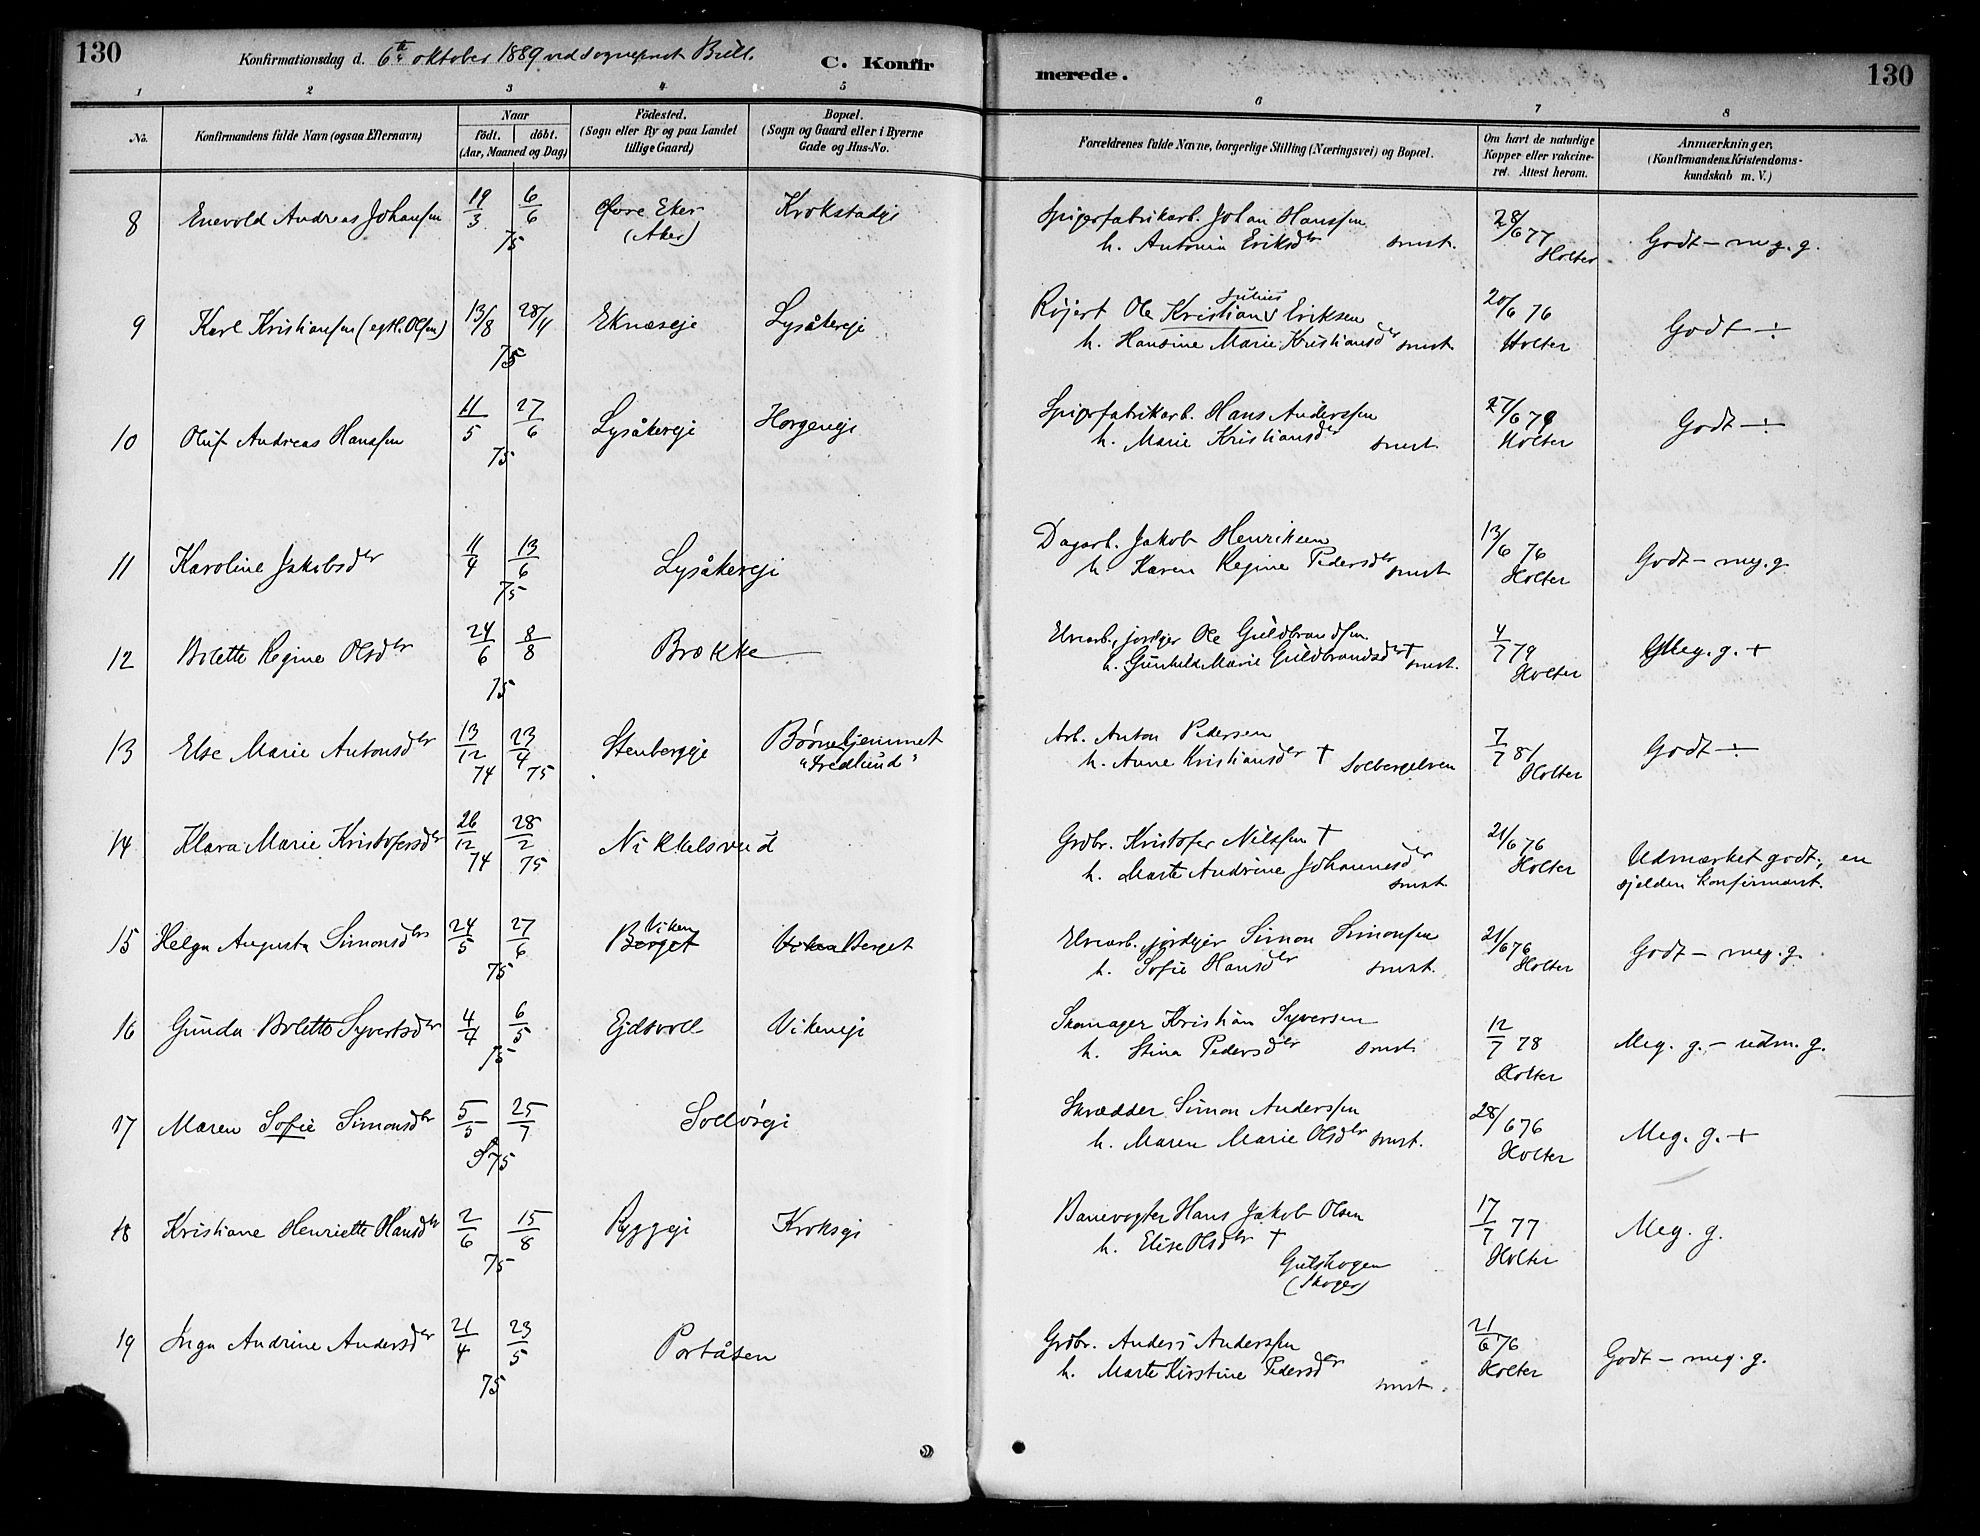 130
Konfirmationsdag d. 6te oktober 1889 ved sogneprest Bull.
C. Konfirmerede.
130
1 2 3 4 5 6 7 8
No.
Konfirmandens fulde Navn (ogsaa Efternavn)
Naar
födt. | döbt.
(Aar, Maaned og Dag)
Födested.
(Sogn eller By og paa Landet
tillige Gaard)
Bopæl.
(Sogn og Gaard eller i Byerne
Gade og Hus-No.
Forældrenes fulde Navne, borgerlige Stilling (Næringsvei) og Bopæl.
Om havt de naturlige
Kopper eller vakcine-
ret. Attest herom.
Anmærkninger,
(Konfirmandens Kristendoms-
kundskab m. V.)
8 Enevold Andreas Johansen 19/3 6/6 75 Øvre Eker (Aker) Krokstadejе
Spigerfabrikarb. Johan Hanssen
h. Antonia Eriksdtr smst. 28/6 77 Holter Godt – meg. g.
9 Karl Kristiansen (egtl. Olsen) 13/8 28/11 75 Eknæseje Lysåkereje
Röjert Ole Kristian Julius Eriksen
h. Hansine Marie Kristiansdtr smst. 20/6 76 Holter Godt ÷
10 Oluf Andreas Hanssen 11/5 27/6 75 Lysåkereje Horgeneje
Spigerfabrikarb. Hans Anderssen
h. Marie Kristiansdtr smst. 27/6 79 Holter Godt ÷
11 Karoline Jakobsdtr 11/4 13/6 75 Lysåkereje
Dagarb. Jakob Henriksen
h. Karen Regine Pedersdtr smst. 13/6 76 Holter Godt – meg. g.
12 Bolette Regine Olsdtr 24/6 8/8 75 Brække
Elvearb., jordejer Ole Guldbrandsen
h. Gunhild Marie Guldbrandsdtr † smst. 4/7 79 Holter Meg. g. +
13 Else Marie Antonsdtr 13/12 74 23/4 75 Stenbergeje Børnehjemmet "Fredlund"
Arb. Anton Pedersen
h. Anne Kristiansdtr † Solbergelven 7/7 81 Holter Godt ÷
14 Klara Marie Kristofersdtr 26/12 74 28/2 75 Nikkelsrud
Grdbr. Kristofer Nilssen †
h. Marte Andrine Johannesdtr smst. 21/6 76 Holter Udmærket godt, en
sjelden konfirmant.
15 Helga Augusta Simonsdtr 24/5 27/6 75 Berget Viken Viken Berget
Elvearb., jordejer Simon Simonsen
h. Sofie Hansdtr smst. 21/6 76 Holter Godt – meg. g.
16 Gunda Bolette Syvertsdtr 4/4 6/5 75 Ejdsvoll Vikeneje
Skomager Kristian Syversen
h. Stina Pedersdtr smst. 12/7 78 Holter Meg. g. – udm. g.
17 Maren Sofie Simonsdtr 5/5 25/7 75 Sollöseje
Skrædder Simon Anderssen
h. Maren Marie Olsdtr smst. 28/6 76 Holter Meg. g. +
18 Kristiane Henriette Hansdtr 2/6 15/8 75 Ryggeje Krokseje
Banevogter Hans Jakob Olsen
h. Elise Olsdtr † Gulskogen
(Skoger) 17/7 77 Holter Meg. g.
19 Inga Andrine Andersdtr 21/4 23/5 75 Portåsen
Grdbr. Anders Anderssen
h. Marte Kirstine Pedersdtr smst. 21/6 76 Holter Godt – meg. g.